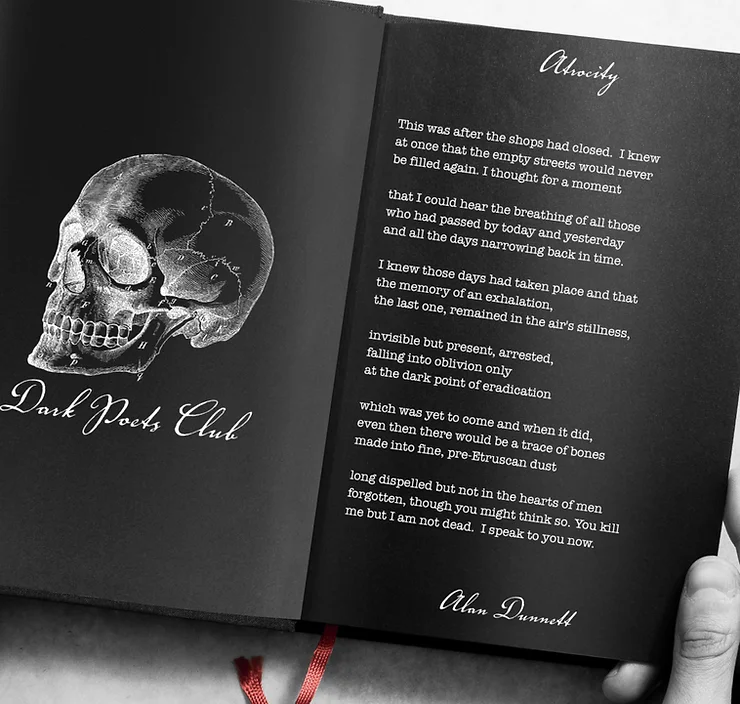 Dark Poets Club
Atrocity
This was after the shops had closed. I knew
at once that the empty streets would never
be filled again. I thought for a moment
that I could hear the breathing of all those
who had passed by today and yesterday
and all the days narrowing back in time.
I knew those days had taken place and that
the memory of an exhalation,
the last one, remained in the air's stillness,
invisible but present, arrested,
falling into oblivion only
at the dark point of eradication
which was yet to come and when it did,
even then there would be a trace of bones
made into fine, pre-Etruscan dust
long dispelled but not in the hearts of men
forgotten, though you might think so. You kill
me but I am not dead. I speak to you now.
Alan Dunnett